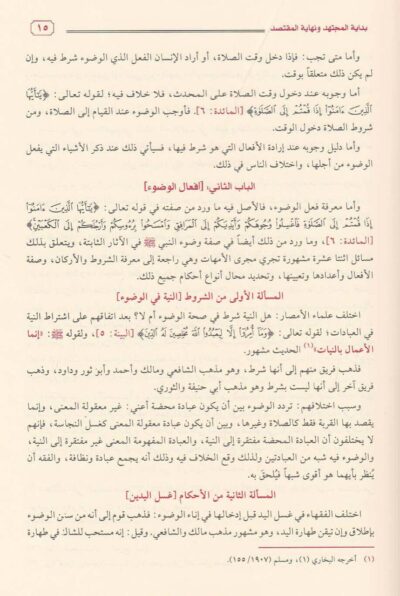 بداية المجتهد ونهاية المقتصد
١٥
وأما متى تجب: فإذا دخل وقت الصلاة، أو أراد الإنسان الفعل الذي الوضوء شرط فيه، وإن
لم يكن ذلك متعلقاً بوقت.
أما وجوبه عند دخول وقت الصلاة على المحدث، فلا خلاف فيه؛ لقوله تعالى: ﴿يَتَأَيُّهَا
الَّذِينَ ءَامَنُوٓا إِذَا قُمْتُمْ إِلَى الصَّلَوٰةِ﴾ [المائدة: ٦]. فأوجب الوضوء عند القيام إلى الصلاة، ومن
شروط الصلاة دخول الوقت.
وأما دليل وجوبه عند إرادة الأفعال التي هو شرط فيها، فسيأتي ذلك عند ذكر الأشياء التي يفعل
الوضوء من أجلها، واختلاف الناس في ذلك.
الباب الثاني: [أفعال الوضوء]
وأما معرفة فعل الوضوء، فالأصل فيه ما ورد من صفته في قوله تعالى: ﴿يَٰٓأَيُّهَا الَّذِينَ ءَامَنُوٓا
إِذَا قُمْتُمْ إِلَى الصَّلَوٰةِ فَاغْسِلُوا وُجُوهَكُمْ وَأَيْدِيَكُمْ إِلَى الْمَرَافِقِ وَامْسَحُوا بِرُءُوسِكُمْ وَأَرْجُلَكُمْ إِلَى الْكَعْبَيْنِ﴾
[المائدة: ٦]، وما ورد من ذلك أيضاً في صفة وضوء النبي ﷺ في الآثار الثابتة، ويتعلق بذلك
مسائل اثنتا عشرة مشهورة تجري مجرى الأمهات وهي راجعة إلى معرفة الشروط والأركان، وصفة
الأفعال وأعدادها وتعيينها، وتحديد محال أنواع أحكام جميع ذلك.
المسألة الأولى من الشروط [النية في الوضوء]
اختلف علماء الأمصار: هل النية شرط في صحة الوضوء أم لا؟ بعد اتفاقهم على اشتراط النية
في العبادات؛ لقوله تعالى: ﴿وَمَآ أُمِرُوٓا إِلَّا لِيَعْبُدُوا اللَّهَ مُخْلِصِينَ لَهُ الدِّينَ﴾ [البينة: ٥]، ولقوله ﷺ: «إنما
الأعمال بالنيات»(١) الحديث مشهور.
فذهب فريق منهم إلى أنها شرط، وهو مذهب الشافعي ومالك وأحمد وأبو ثور وداود، وذهب
فريق آخر إلى أنها ليست بشرط وهو مذهب أبي حنيفة والثوري.
وسبب اختلافهم: تردد الوضوء بين أن يكون عبادة محضة أعني: غير معقولة المعنى، وإنما
يقصد بها القربة فقط كالصلاة وغيرها، وبين أن يكون عبادة معقولة المعنى كغسل النجاسة، فإنهم
لا يختلفون أن العبادة المحضة مفتقرة إلى النية، والعبادة المفهومة المعنى غير مفتقرة إلى النية،
والوضوء فيه شبه من العبادتين ولذلك وقع الخلاف فيه وذلك أنه يجمع عبادة ونظافة، والفقه أن
يُنظر بأيهما هو أقوى شبهاً فيُلحق به.
المسألة الثانية من الأحكام [غسل اليدين]
اختلف الفقهاء في غسل اليد قبل إدخالها في إناء الوضوء: فذهب قوم إلى أنه من سنن الوضوء
بإطلاق وإن تيقن طهارة اليد، وهو مشهور مذهب مالك والشافعي. وقيل: إنه مستحب للشاك في طهارة
(١) أخرجه البخاري (١)، ومسلم (١٥٥/١٩٠٧).